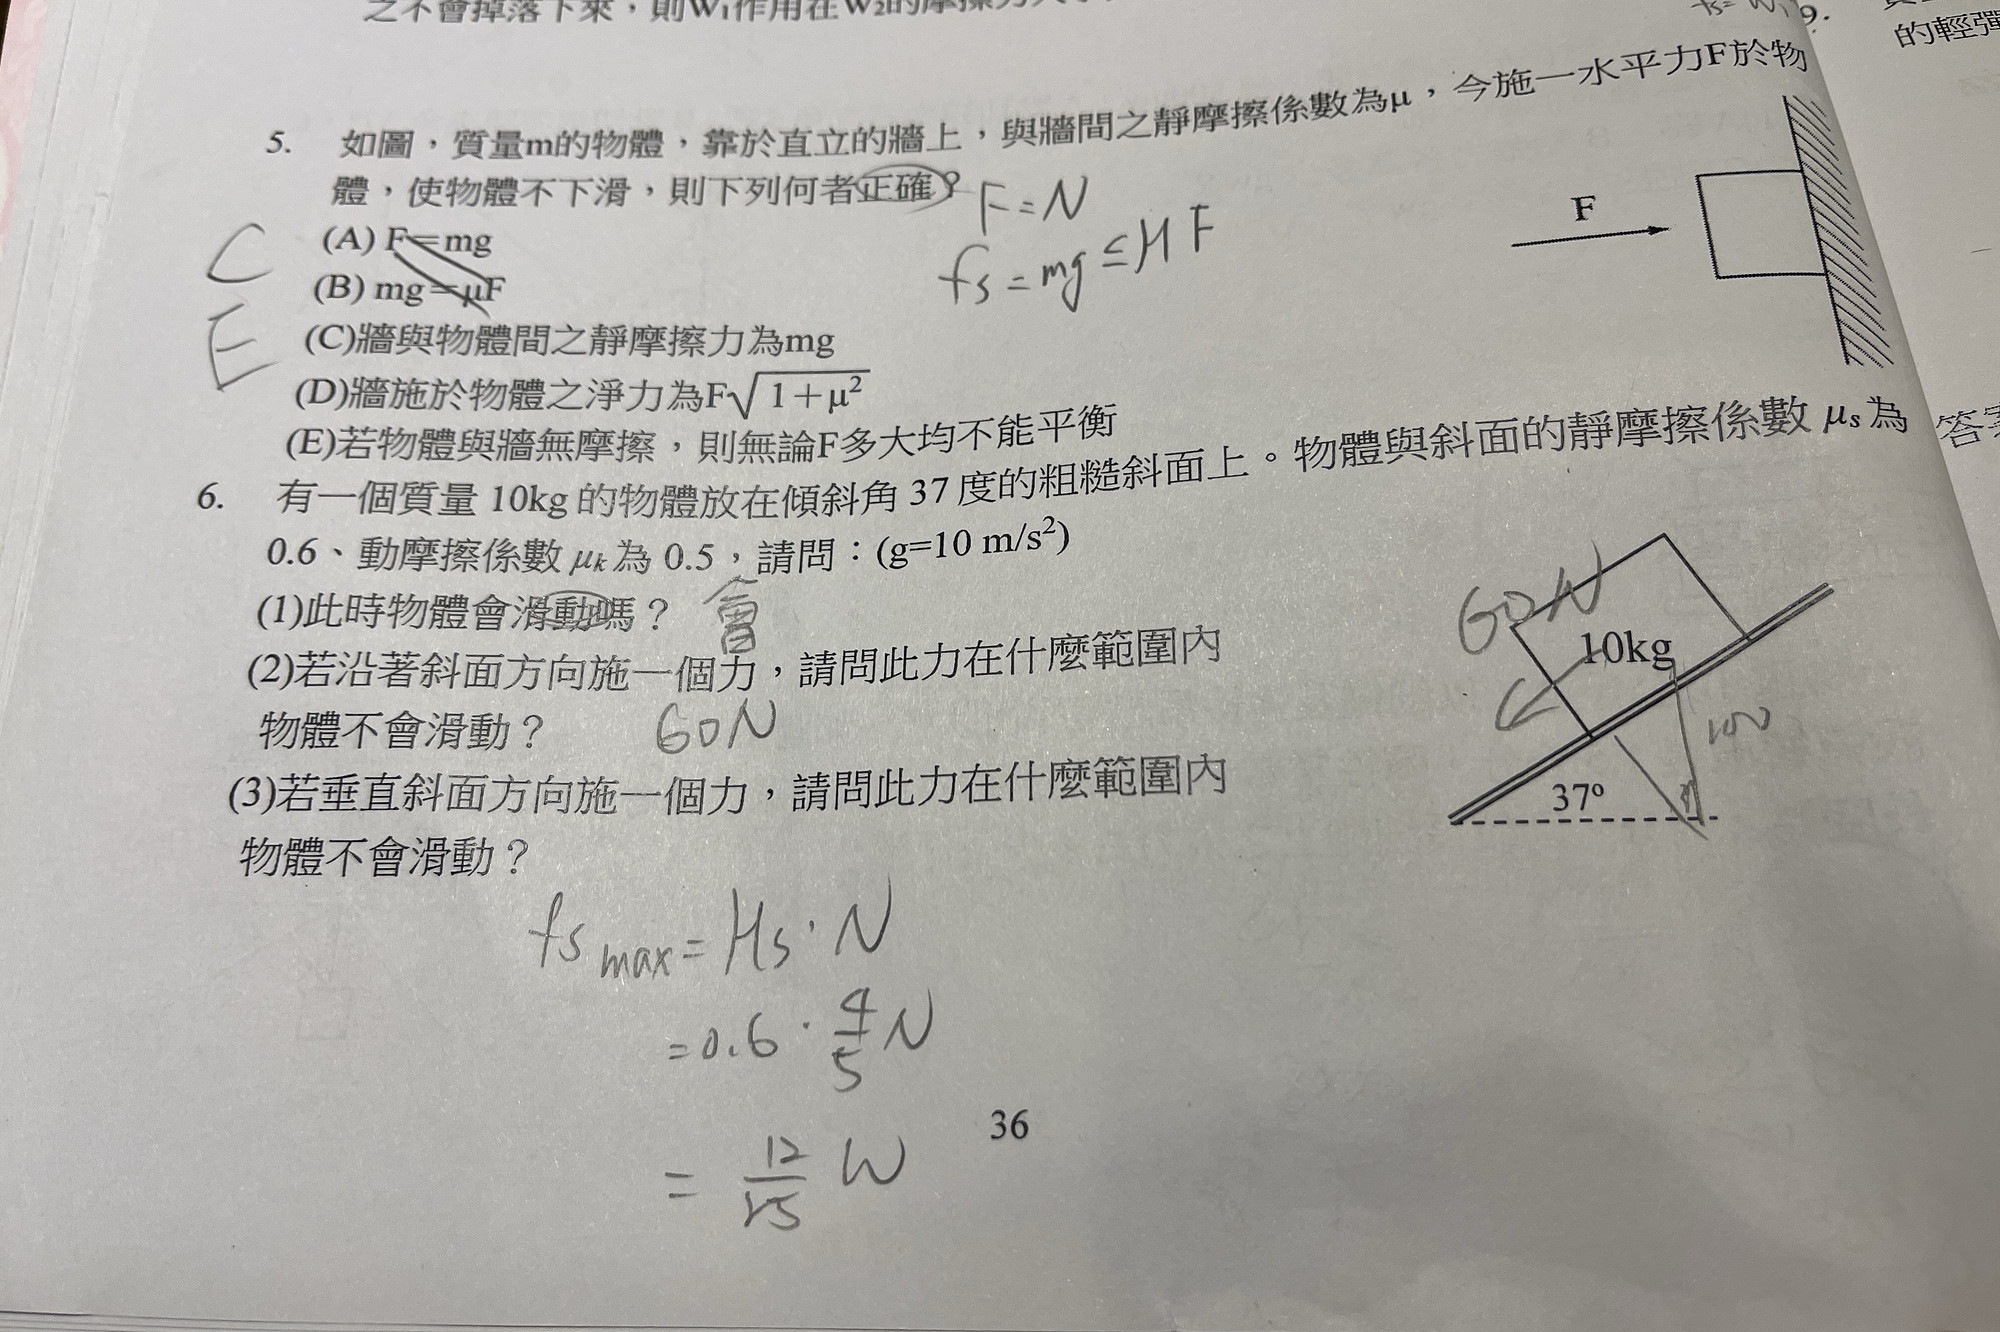 之不會掉落下來，則W₁作用在W₂的摩擦力大小
fs=W₁
9.
的輕彈
5. 如圖，質量m的物體，靠於直立的牆上，與牆間之靜摩擦係數為μ，今施一水平力F於物
體，使物體不下滑，則下列何者正確？
F=N
(A) F=mg
fs=mg≤μF
C
(B) mg=μF
E
(C)牆與物體間之靜摩擦力為mg
(D)牆施於物體之淨力為F√1+μ²
(E)若物體與牆無摩擦，則無論F多大均不能平衡
F
6. 有一個質量 10kg 的物體放在傾斜角 37 度的粗糙斜面上。物體與斜面的靜摩擦係數 μs 為
答案
0.6、動摩擦係數 μk 為 0.5，請問：(g=10 m/s²)
(1)此時物體會滑動嗎？ 會
(2)若沿著斜面方向施一個力，請問此力在什麼範圍內
物體不會滑動？ 60N
(3)若垂直斜面方向施一個力，請問此力在什麼範圍內
物體不會滑動？
60N
10kg
100
37º
fs max=μs·N
=0.6·4/5 N
=12/25 W
36